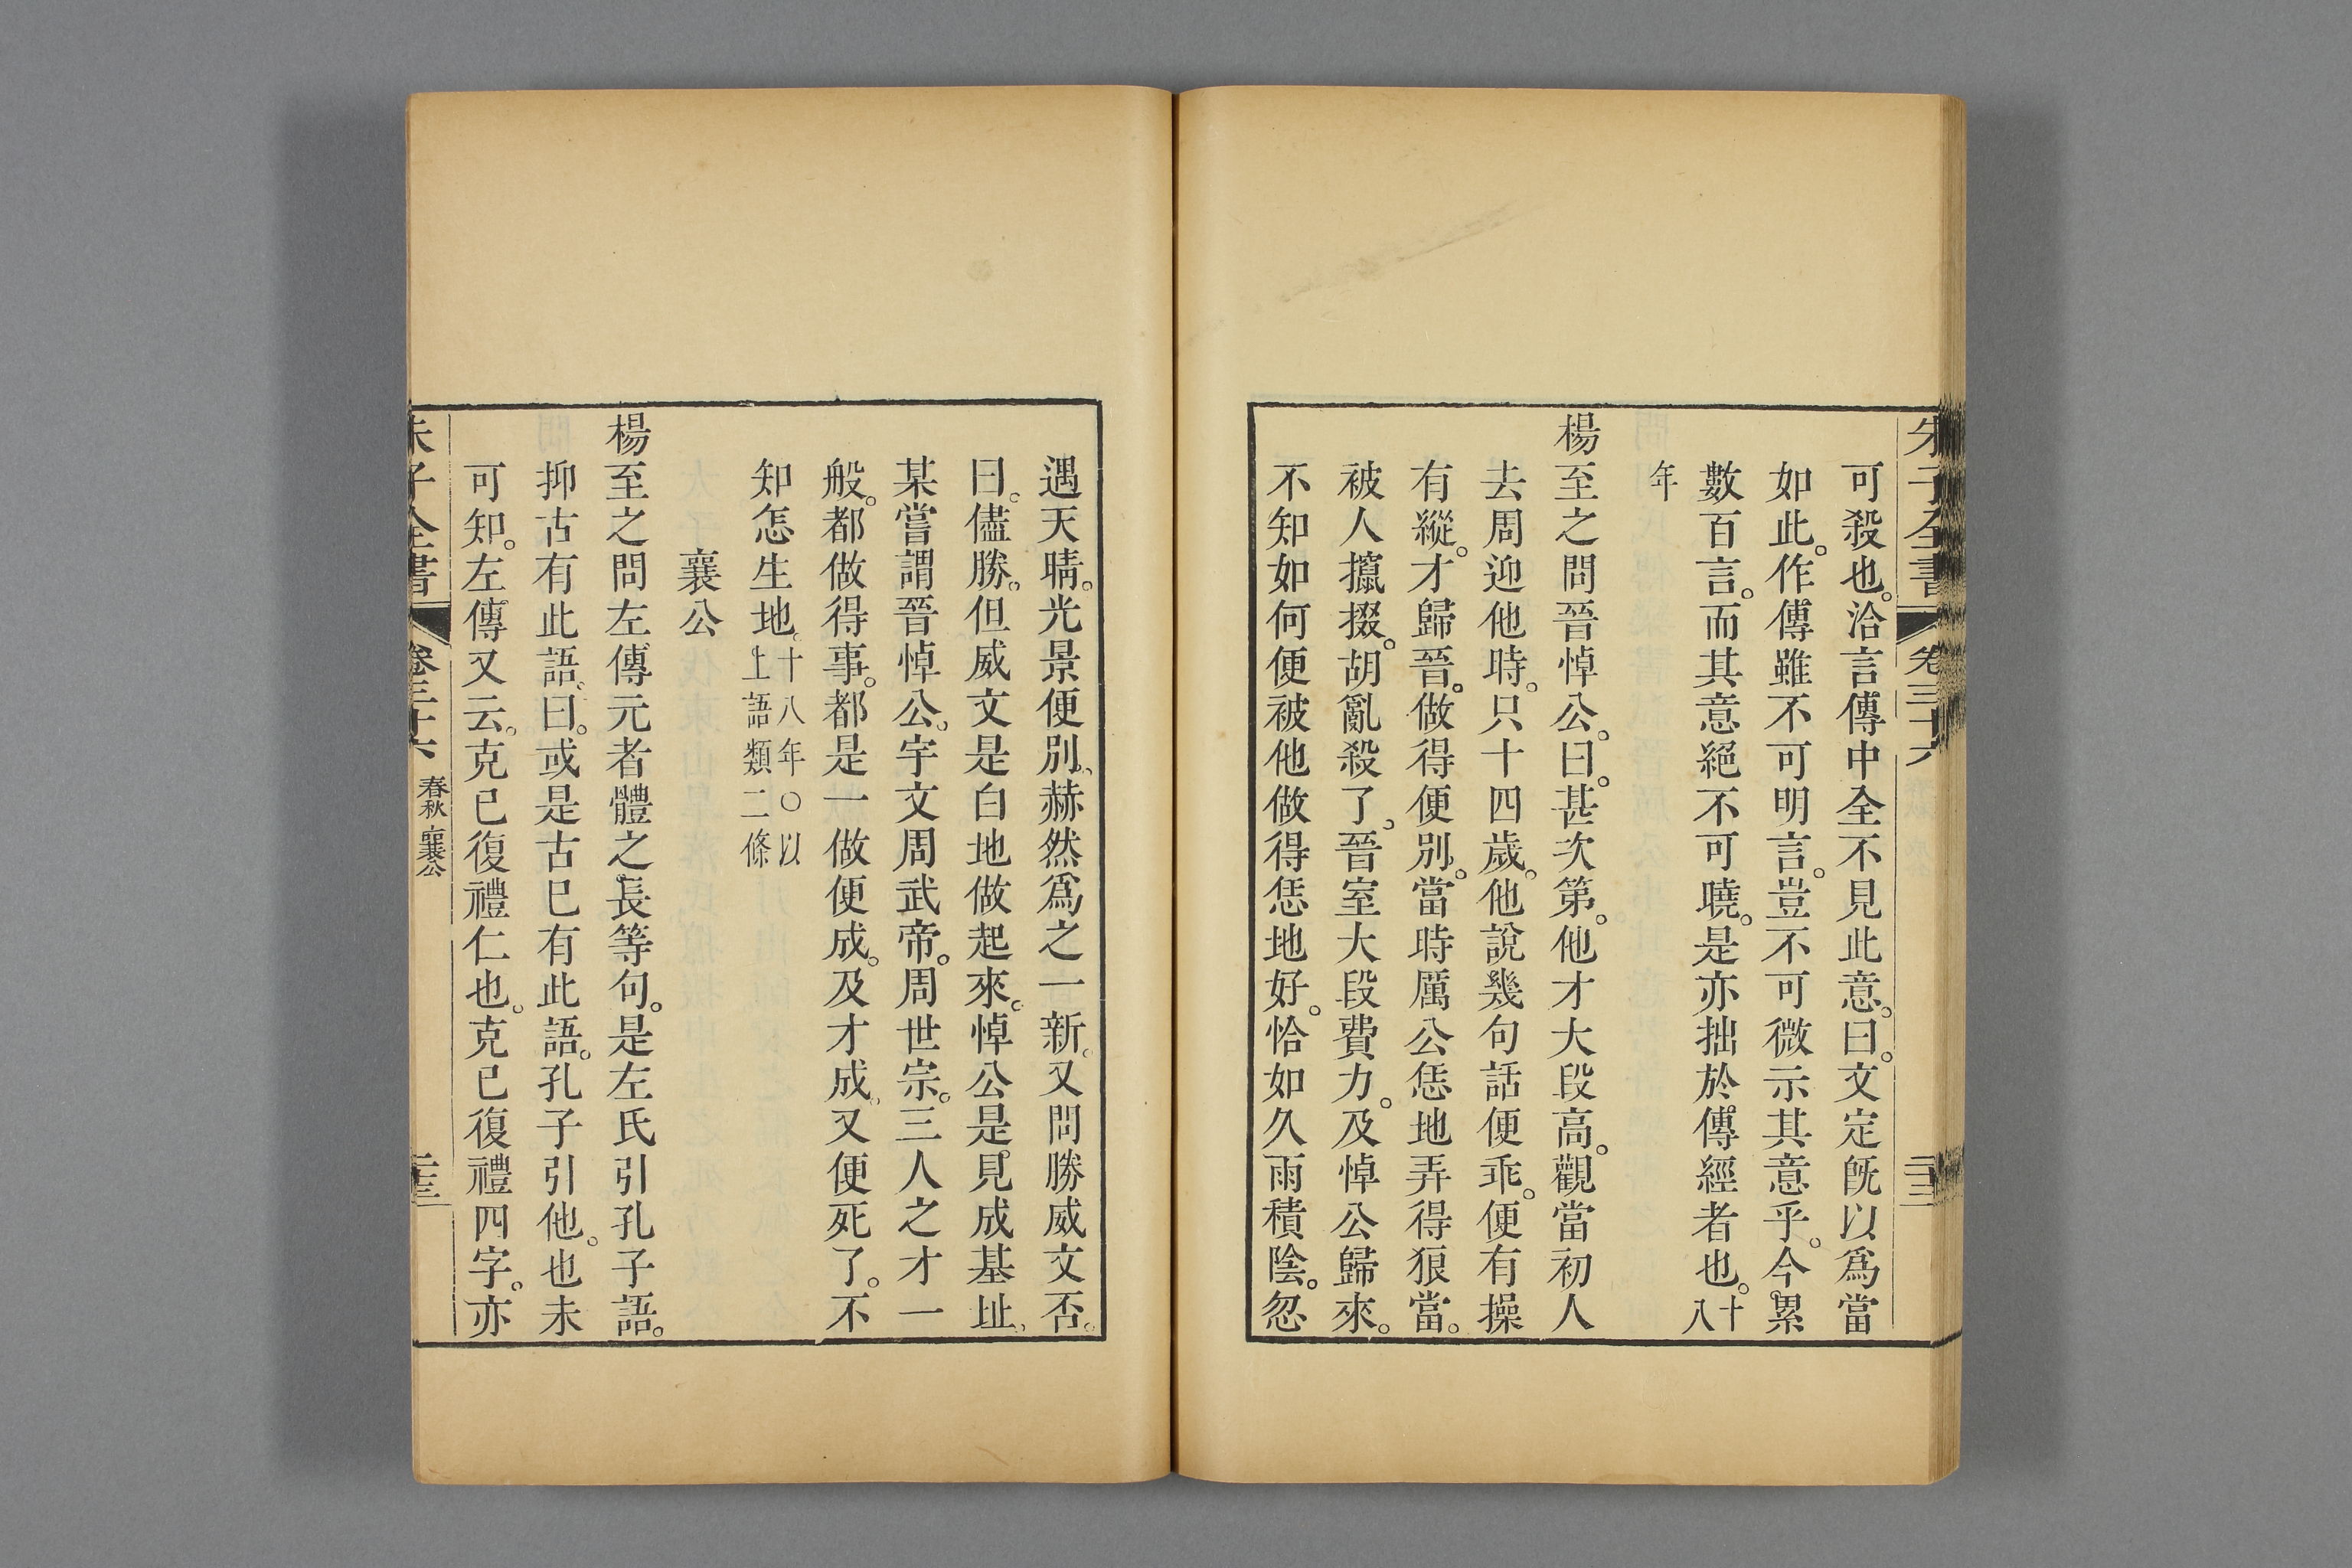 朱子全書 卷三十六
可殺也。洽言傳中全不見此意。曰。文定旣以爲當
如此。作傳雖不可明言。豈不可微示其意乎。今累
數百言。而其意絕不可曉。是亦拙於傳經者也。十八
年
楊至之問晉悼公。曰。甚次第。他才大段高。觀當初人
去周迎他時。只十四歲。他說幾句話便乖。便有操
有縱。才歸晉。做得便別。當時厲公恁地弄得狼當。
被人攛掇。胡亂殺了。晉室大段費力。及悼公歸來。
不知如何便被他做得恁地好。恰如久雨積陰。忽
遇天晴。光景便別。赫然爲之一新。又問勝威文否。
曰。儘勝。但威文是白地做起來。悼公是見成基址。
某嘗謂晉悼公。宇文周武帝。周世宗。三人之才一
般。都做得事。都是一做便成。及才成。又便死了。不
知怎生地。十八年○以上語類二條
襄公
楊至之問左傳元者體之長等句。是左氏引孔子語。
抑古有此語。曰。或是古已有此語。孔子引他。也未
可知。左傳又云。克已復禮仁也。克已復禮四字。亦
朱子全書 卷三十六 春秋 襄公 二十三